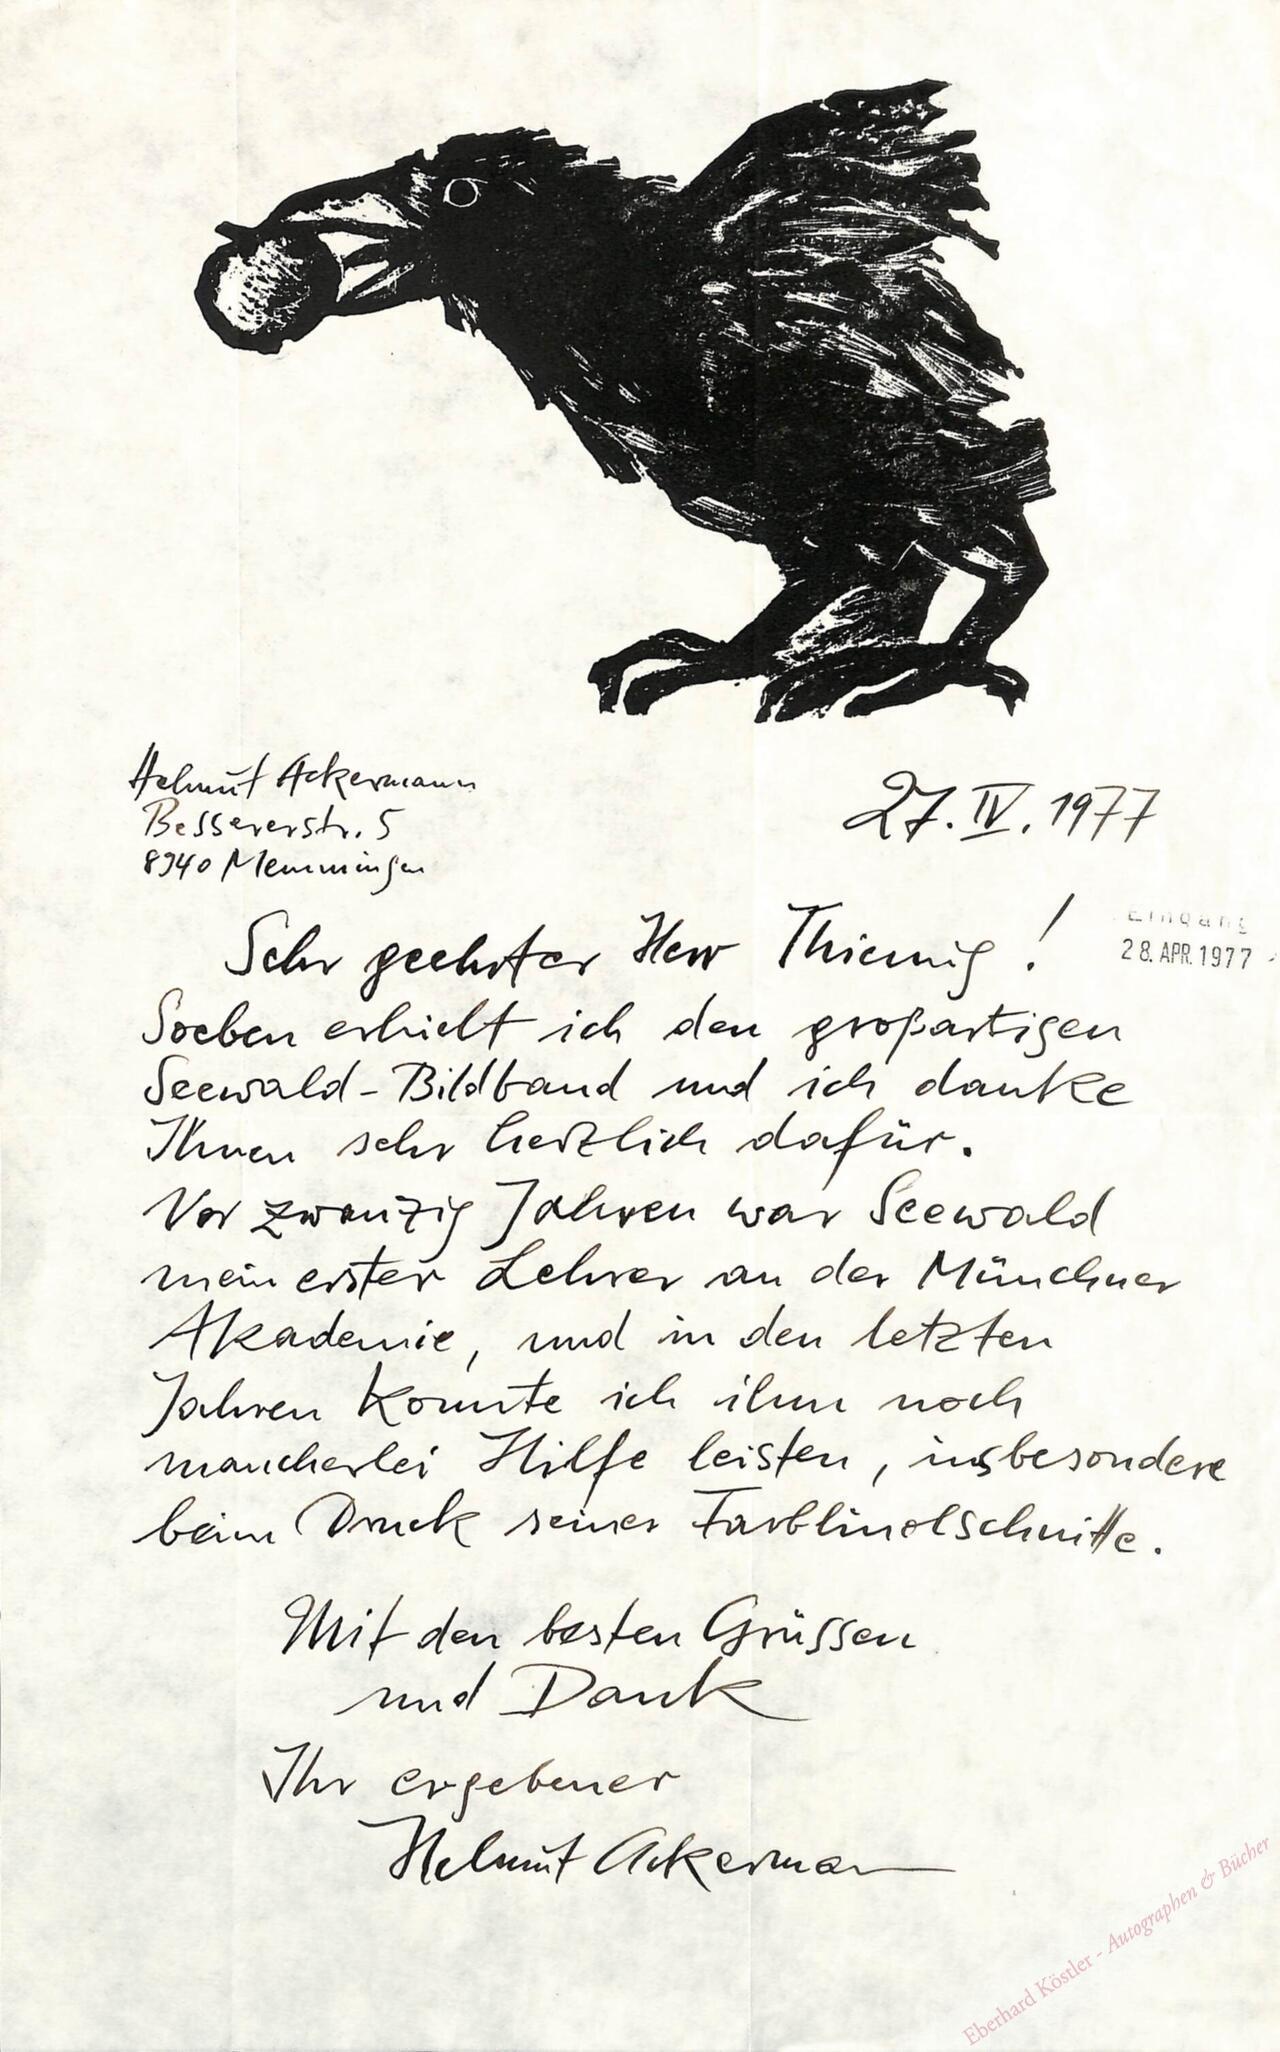 Helmut Ackermann
Bessererstr. 5
8940 Memmingen
27. IV. 1977
Eingang
28. APR. 1977
Sehr geehrter Herr Thiemig!
Soeben erhielt ich den großartigen
Seewald-Bildband und ich danke
Ihnen sehr herzlich dafür.
Vor zwanzig Jahren war Seewald
mein erster Lehrer an der Münchner
Akademie, und in den letzten
Jahren konnte ich ihm noch
mancherlei Hilfe leisten, insbesondere
beim Druck seiner Farblinolschnitte.
Mit den besten Grüssen
und Dank
Ihr ergebener
Helmut Ackermann
Eberhard Köstler - Autographen & Bücher